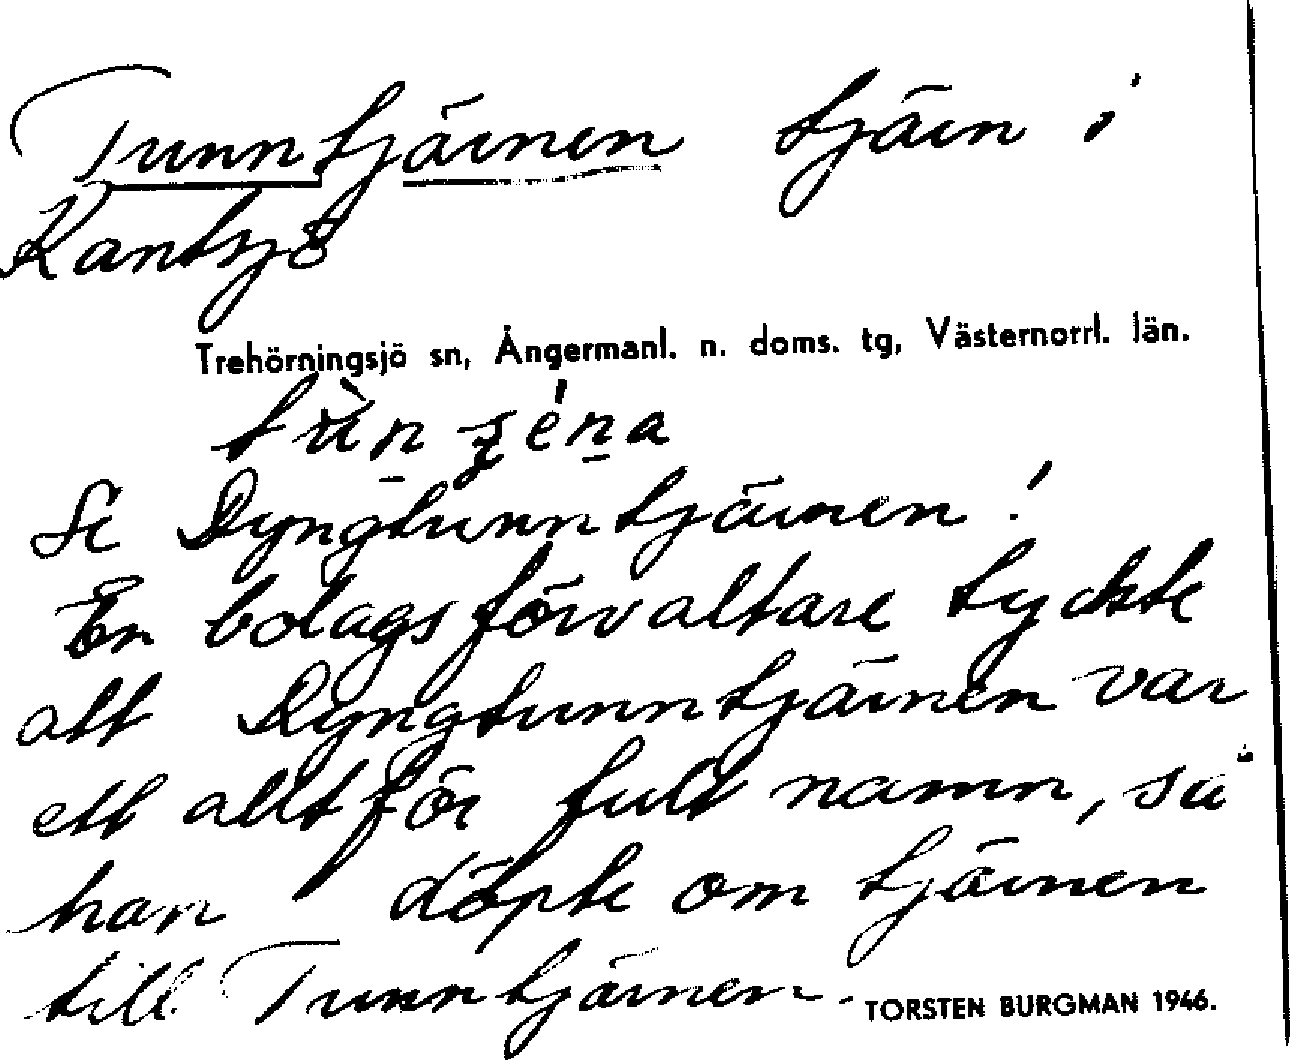 Tunntjärnen tjärn i
Kantsjö
Trehörningsjö sn, Ångermanl. n. doms. tg, Västernorrl. län.
Se Dyngtunntjärnen!
En bolagsförvaltare tyckte
att Dyngtunntjärnen var
ett alltför fult namn, så
han döpte om tjärnen
till Tunntjärnen.
TORSTEN BURGMAN 1946.